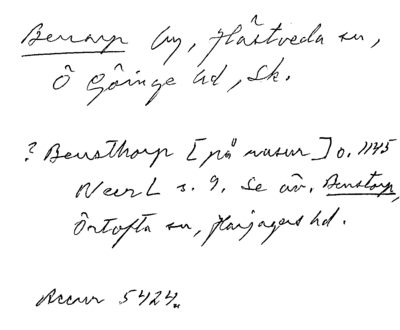 Benarp by, Hästveda sn,
Ö Göinge hd, Sk.
? Bensthorp [på rasur] o. 1145
NecrL s. 9. Se äv. Benstorp,
Örtofta sn, Harjagers hd.
Accur 5424.